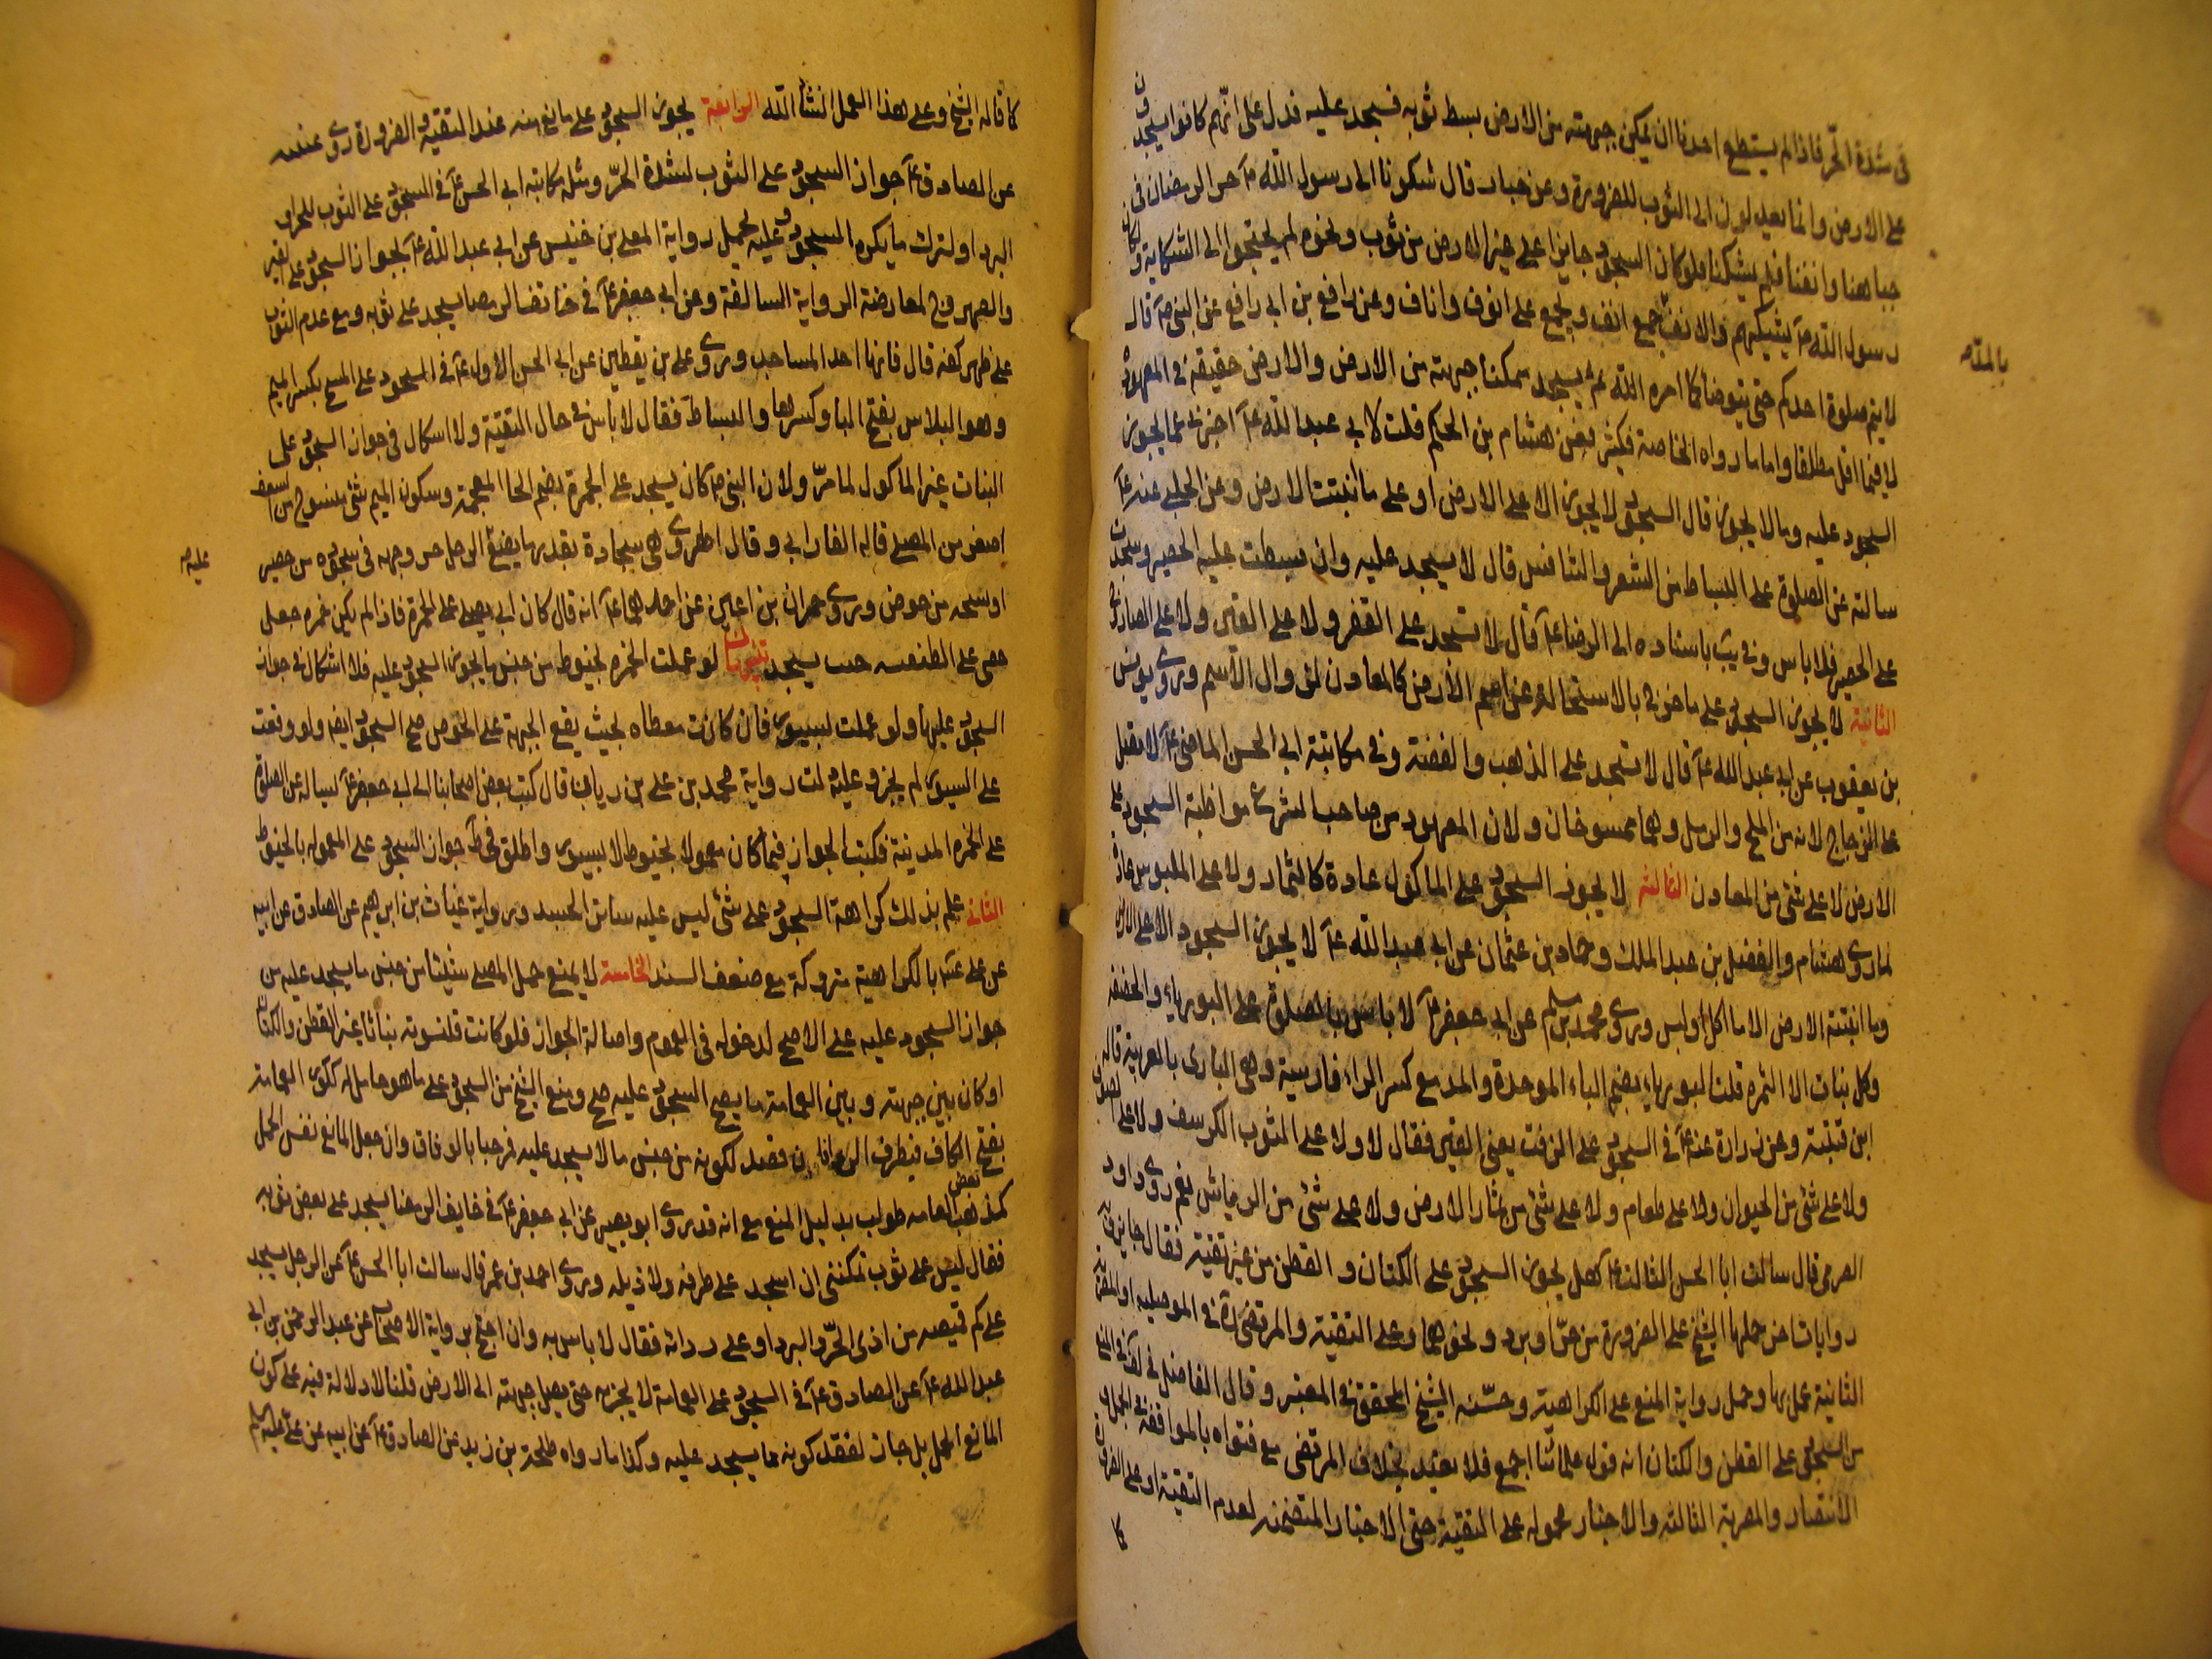 في شدة الحر فاذا لم يستطع احدنا ان يمكن جبهته من الارض بسط ثوبه فسجد عليه فدل على انهم كانوا يسجدون
على الارض وانما يعدلون الى الثوب للضرورة وعن خباب قال شكونا الى رسول الله ص حر الرمضاء في
جباهنا واكفنا فلم يشكنا فلو كان السجود جايزا على غير الارض من ثوب ونحوه لم يحتجوا الى الشكاية ولكان
رسول الله ص يشكيهم والانف جمع انف ويجمع على انوف واناف وعن رافع بن ابي رافع عن النبي ص قال
بالمد صه
لا يتم صلوة احدكم حتى يتوضأ كما امره الله ثم يسجد ممكنا جبهته من الارض والارض حقيقة في المعهودة
لا فيما اقل مطلقا واما ما رواه الخاصة فكثير فعن هشام بن الحكم قلت لابي عبد الله ع اخبرني عما يجوز
السجود عليه وما لا يجوز قال السجود لا يجوز الا على الارض او على ما انبتت الارض وعن الحلبي عنه ع
سالته عن الصلوة على البساط من الشعر والطنافس قال لا يسجد عليه وان بسطت عليه الحصير وسجدت
على الحصير فلا باس وفي يب باسناده الى الرضا ع قال لا تسجد على القفر ولا على القير ولا على الصاروج
الثانية لا يجوز السجود على ما خرج بالاستحالة عن اسم الارض كالمعادن لزوال الاسم وروى يونس
بن يعقوب عن ابي عبد الله ع قال لا تسجد على الذهب والفضة وفي مكاتبة ابي الحسن الماضي ع لا تصل
على الزجاج لانه من الملح والرمل وهما ممسوخان ولان المعهود من صاحب الشرع مواظبة السجود على
الارض لا على شئ من المعادن الثالثة لا يجوز السجود على الماكول عادة كالثمار ولا على الملبوس عادة
لما روى هشام والفضل بن عبد الملك وحماد بن عثمان عن ابي عبد الله ع لا يجوز السجود الا على الارض
وما انبتته الارض الا ما اكل او لبس وروى محمد بن مسلم عن ابي جعفر ع لا باس بالصلوة على البورياء والخصفة
وكل نبات الا الثمرة قلت البورياء بضم الباء الموحدة والمد مع كسر الراء فارسية وهي الباري بالعربية قاله
ابن قتيبة وعن زرارة عنه ع في السجود على الزفت يعني القير فقال لا ولا على الثوب الكرسف ولا على الصوف
ولا على شئ من الحيوان ولا على طعام ولا على شئ من ثمار الارض ولا على شئ من الرياش نعم روى داود
الصرمي قال سالت ابا الحسن الثالث ع هل يجوز السجود على الكتان والقطن من غير تقية فقال جايز وفيه
روايات اخر حملها الشيخ على الضرورة من حر او برد ونحوهما وعلى التقية والمرتضى ره في الموصلية او المصرية
الثانية عمل بها وحمل رواية المنع على الكراهية وحسنه الشيخ المحقق في المعتبر وقال الفاضل في لف في المنع
من السجود على القطن والكتان انه قول علمائنا اجمع فلا يعتد بخلاف المرتضى مع فتواه بالموافقة في الجمل و
الانتصار والمصرية الثالثة والاخبار محمولة على التقية حتى الاخبار المتضمنة لعدم التقية او على الضرورة
كما
كما قاله الشيخ وعلى هذا العمل انشاء الله الرابعة يجوز السجود على ما منع منه عند التقية والضرورة روى عنبسه
عن الصادق ع جواز السجود على الثوب لشدة الحر ومثله مكاتبة ابي الحسن ع في السجود على الثوب للحر او
البرد او لترك ما يكره السجود وعليه تحمل رواية المعلى بن خنيس عن ابي عبد الله ع بجواز السجود على القير
والصهروج لمعارضة الرواية السالفة وعن ابي جعفر ع في خائف الرمضا يسجد على ثوبه ومع عدم الثوب
على ظهر كفه قال فانها احد المساجد وروى على بن يقطين عن ابي الحسن الاول ع في السجود على المسح بكسر الميم
وهو البلاس بفتح الباء وكسرها والبساط فقال لا باس في حال التقية ولا اشكال في جواز السجود على
النبات غير الماكول لما مر ولان النبي ص كان يسجد على الخمرة بضم الخاء المعجمة وسكون الميم شئ منسوج من السعف
اصغر من المصلى قاله الفارابي وقال الهروي هي سجادة بقدر ما يضع الرجل حر وجهه في سجوده من حصير
عليه صه
او نسجه من خوص وروى حمران بن اعين عن احدهما ع انه قال كان ابي يصلي على الخمرة فاذا لم يكن خمره جعل
حصى على الطنفسه حيث يسجد تنبيهان لو عملت الخمره بخيوط من جنس ما يجوز السجود عليه فلا اشكال في جواز
السجود عليها ولو عملت بسيور فان كانت مغطاه بحيث يقع الجبهة على الخوص صح السجود ايضا ولو وقعت
على السيور لم يجز وعليه دلت رواية محمد بن على بن ريان قال كتب بعض اصحابنا الى ابي جعفر ع يساله عن الصلوة
على الخمره المدنية فكتب الجواز فيما كان معمولا بخيوط لا بسيور واطلق في ط جواز السجود على المعمولة بالخيوط
الثاني علم بذلك كراهة السجود على شئ ليس عليه ساير الجسد ورواية غياث بن ابراهيم عن الصادق عن ابيه
عن على ع بالكراهية متروكة مع ضعف السند الخامسة لا يمنع حمل المصلى شيئا من جنس ما يسجد عليه من
جواز السجود عليه على الاصح لدخوله في العموم واصالة الجواز فلو كانت قلنسوته نباتا غير القطن والكتان
او كان بين جبهته وبين العمامة ما يصح السجود عليه صح ومنع الشيخ من السجود على ما هو حامل له ككور العمامة
بفتح الكاف فيطرف الرداء فان قصد لكونه من جنس ما لا يسجد عليه فمرحبا بالوفاق وان جعل المانع نفس الحمل
كمذهب بعض العامه طولب بدليل المنع مع انه قد روى ابو بصير عن ابي جعفر ع في خايف الرمضا يسجد على بعض ثوبه
فقال ليس على ثوب يمكنني ان اسجد على طرفه ولا ذيله وروى احمد بن عمر قال سالت ابا الحسن ع عن الرجل يسجد
على كم قميصه من اذى الحر والبرد او على ردائه فقال لا باس به وان احتج برواية الاصحاب عن عبد الرحمن بن ابي
عبد الله ع عن الصادق ع في السجود على العمامة لا يجزيه حتى يصل جبهته الى الارض قلنا لا دلالة فيه على كون
المانع الحمل بل جاز لفقد كونه مما يسجد عليه وكذا ما رواه طلحة بن زيد عن الصادق ع عن ابيه عن على عليه السلم